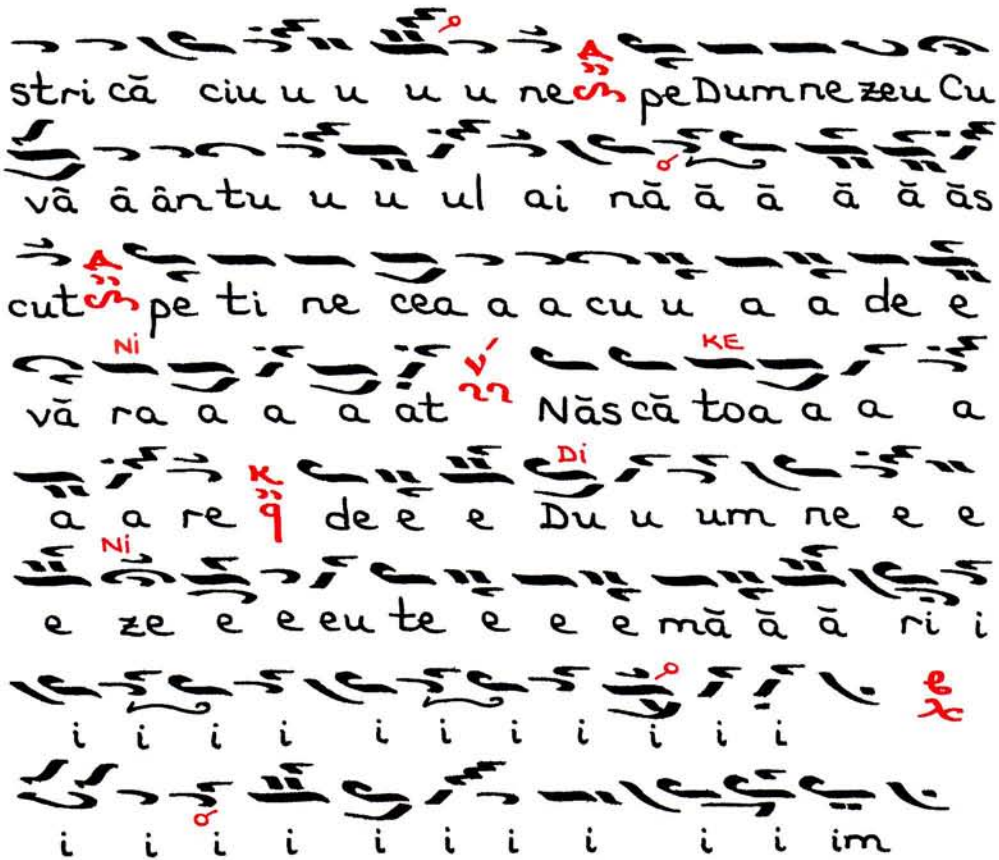 stri că ciu u u u u ne pe Dum ne zeu Cu
vã ã ân tu u u ul ai nă ă ă ă ă ăs
cut pe ti ne cea a a cu u a a de e
Ni KE
vă ra a a a at Năs că toa a a a
Di
a a re de e e Du u um ne e e
Ni
e ze e e eu te e e e mă ă ă ri i
i i i i i i i i i i i
i i i i i i i i i i im